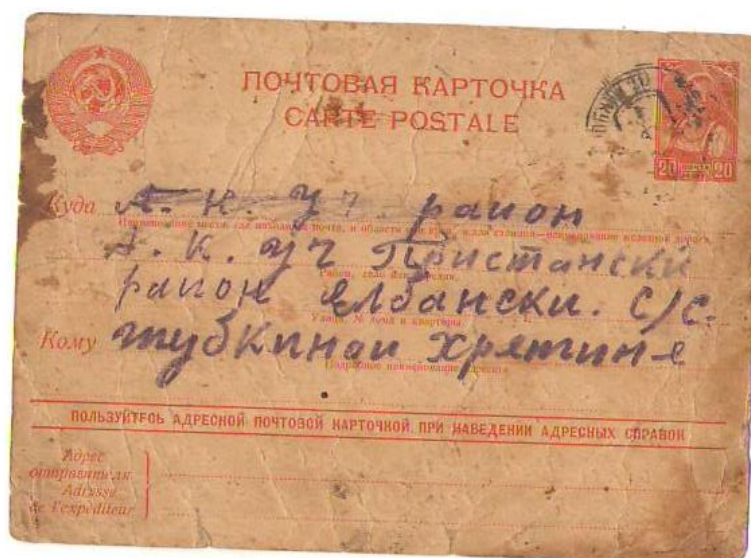 ПОЧТОВАЯ КАРТОЧКА
CARTE POSTALE
20 ПОЧТА 20
Куда А. К. Уч. район
А. К. уч Пристански
Район, село или деревня.
район Елбански. С/С.
Улица, № дома и квартиры
Кому
Подробное наименование адресата
ПОЛЬЗУЙТЕСЬ АДРЕСНОЙ ПОЧТОВОЙ КАРТОЧКОЙ ПРИ НАВЕДЕНИИ АДРЕСНЫХ СПРАВОК
Адрес
отправителя
Adresse
de l'expéditeur